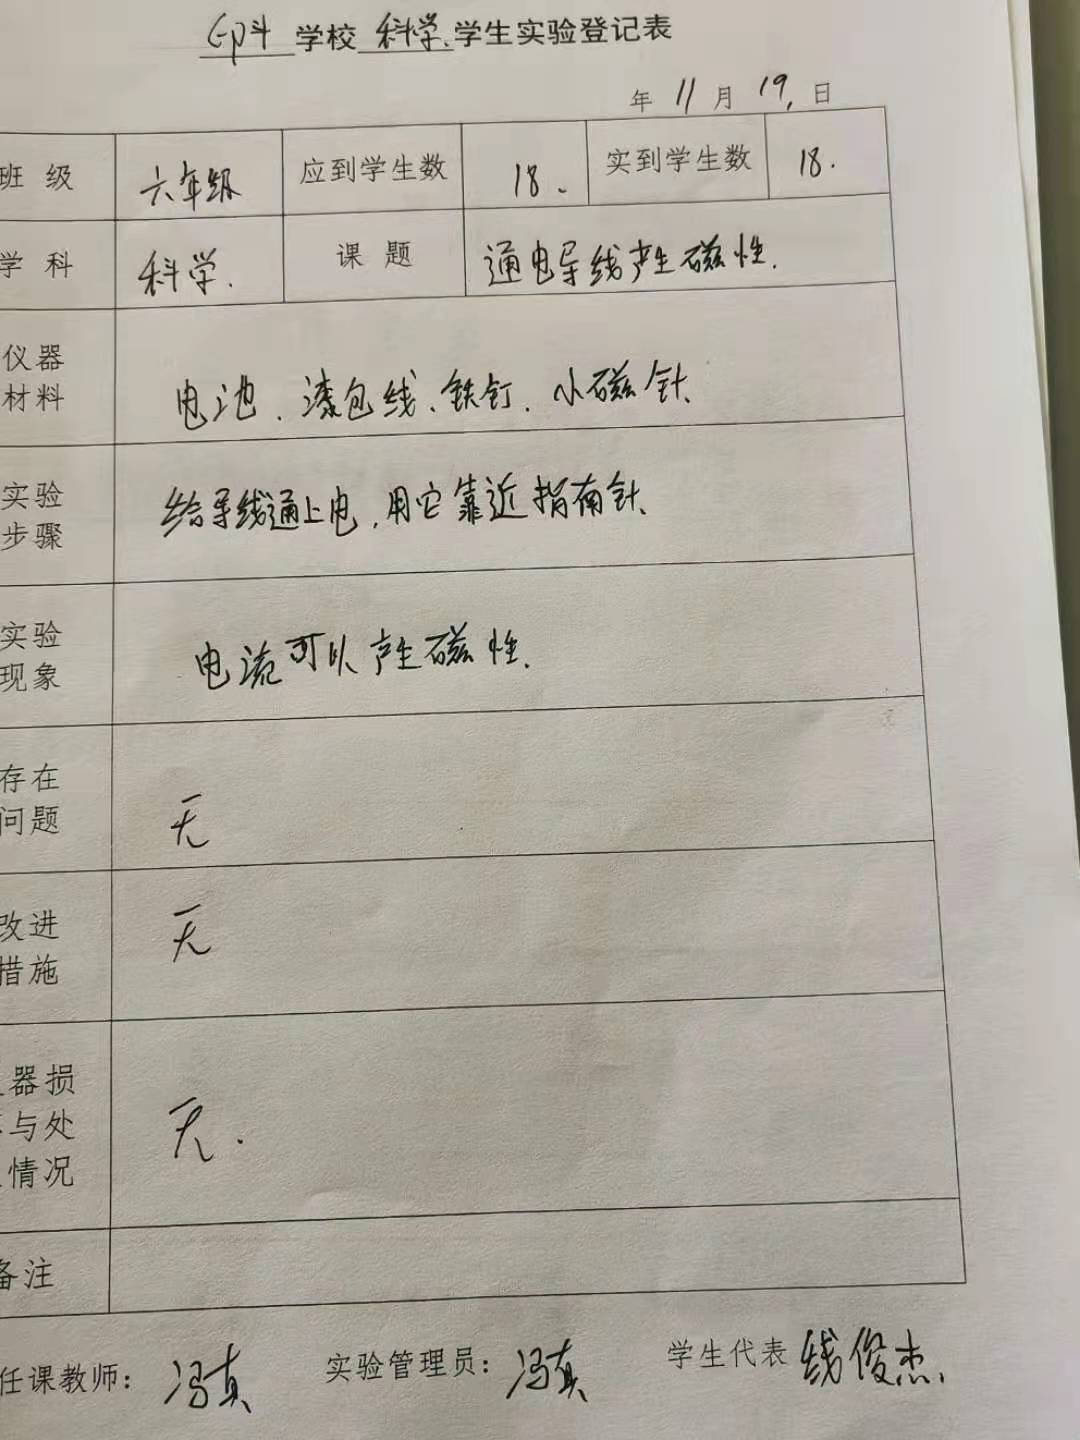 印斗 学校 科学. 学生实验登记表
年 11 月 19. 日
班 级 六年级 应到学生数 18. 实到学生数 18.
学 科 科学. 课 题 通电导线产生磁性.
仪器
材料
电池、漆包线、铁钉、小磁针、
实验
步骤
给导线通上电,用它靠近指南针、
实验
现象
电流可以产生磁性.
存在
问题
无
改进
措施
无
器损
与处
情况
无.
备注
任课教师: 冯真 实验管理员: 冯真 学生代表 线俊杰.